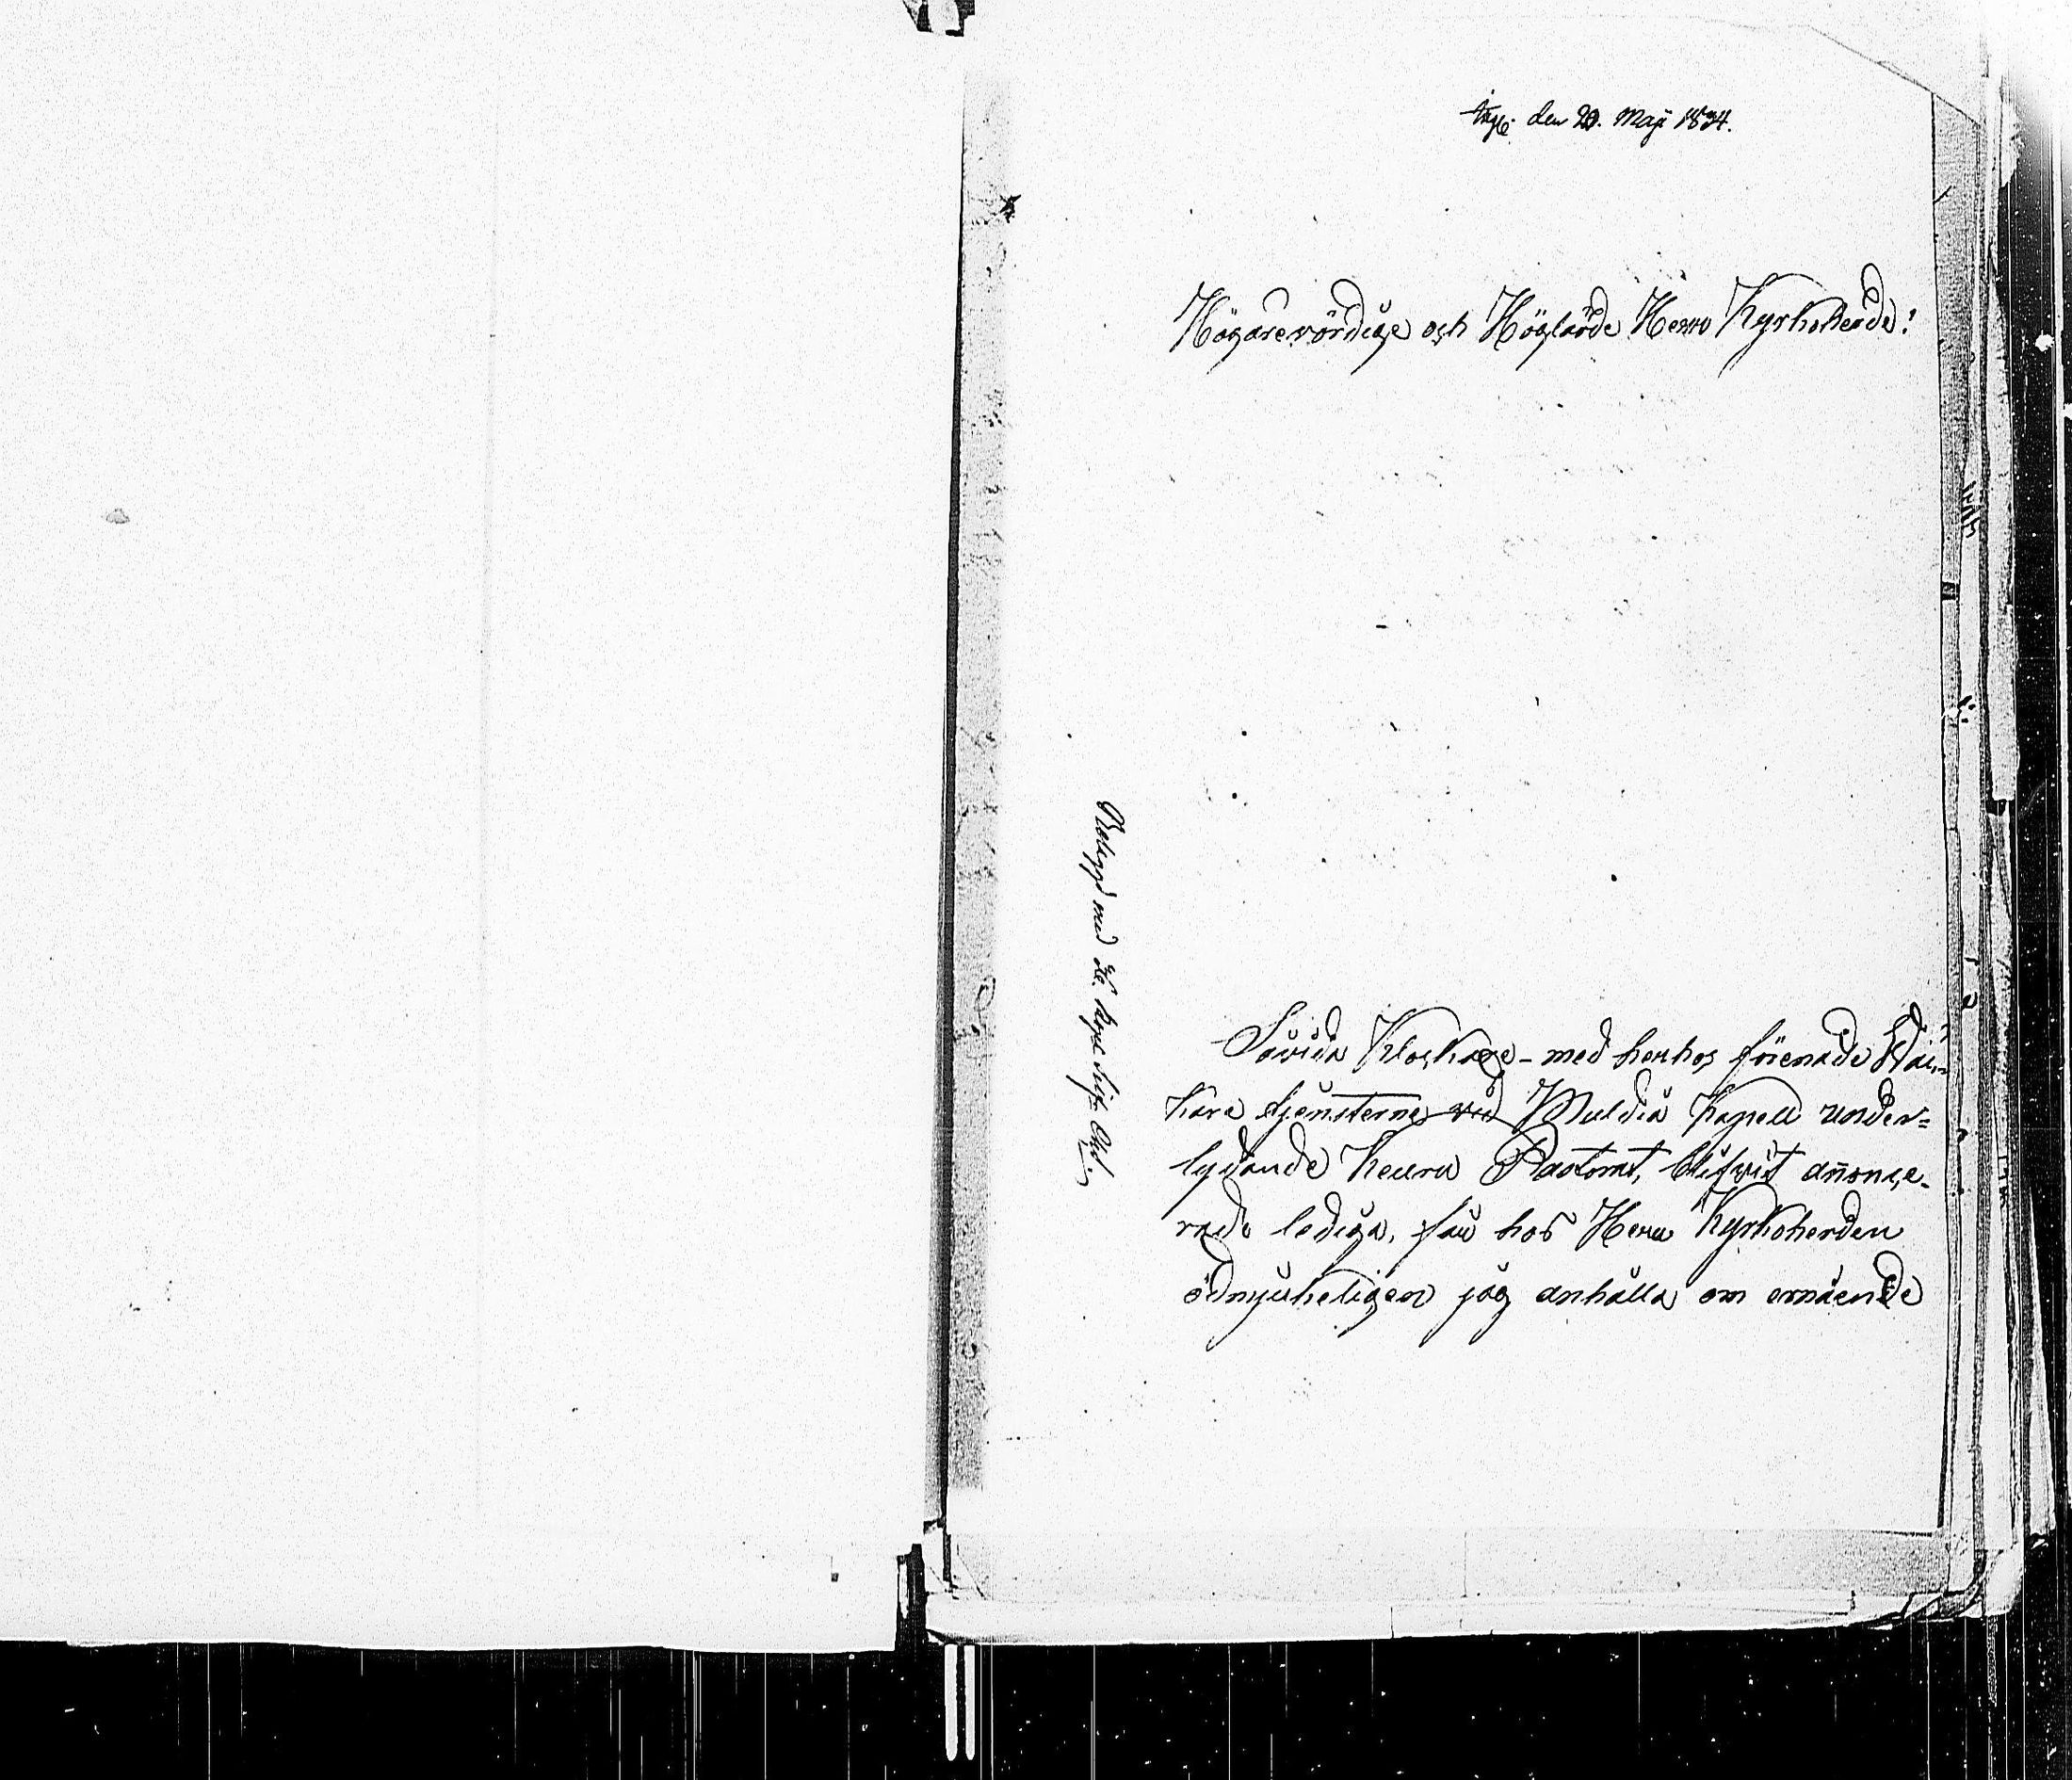 den 20. Maji 1834.
Högärevördige och Höglärde Herr Kyrkoherde!
Såvida Klockare- med herhos förenade Stäm-
kare tjensterne vid Muldia Kapell under-
lydande Keuru Pastorat, blifvit annonce-
rade lediga, får hos Herr Kyrkoherden
ödmjukeligen jag anhålla om ernående
Belagd med